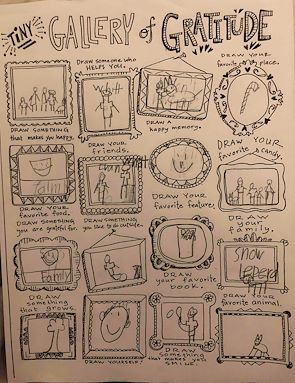 TINY
GALLERY of GRATITUDE
DRAW SOMETHING
that makes you happy.
DRAW SOMEONE WHO
HELPS YOU.
DRAW A
happy memory.
DRAW YOUR
favorite place.
DRAW YOUR
favorite food.
DRAW SOMETHING
you are grateful for.
DRAW YOUR
friends.
DRAW SOMETHING
you like to do outside.
DRAW YOUR
favorite feature.
DRAW YOUR
favorite candy.
DRAW
your
family.
family
DRAW
something
that grows.
DRAW
your favorite
book.
Snow
leperd
DRAW
your
favorite animal.
DRAW YOURSELF!
DRAW
something
that makes you
SMILE!